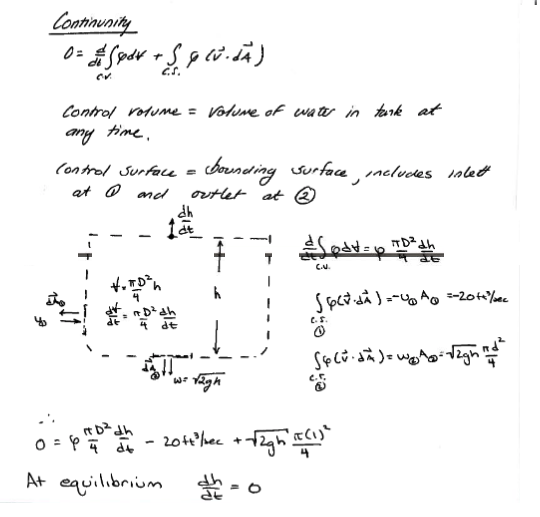 Continunity
0 = d/dt ∫ρd∀ + ∫ρ(v⃗·dA⃗)
c.v. c.s.
Control volume = volume of water in tank at
any time.
Control surface = bounding surface, includes inlett
at ① and outlet at ②
dh/dt
∀ = πD²/4 h
d∀/dt = πD²/4 dh/dt
h
dA⃗①
υ①
dA⃗②
w = √2gh
d/dt ∫ρd∀ = ρ πD²/4 dh/dt
c.v.
∫ρ(v⃗·dA⃗) = -υ① A① = -20ft³/sec
c.s.
①
∫ρ(v⃗·dA⃗) = w② A② = √2gh πd²/4
c.s.
②
∴
0 = ρ πD²/4 dh/dt - 20ft³/sec + √2gh π(1)²/4
At equilibrium dh/dt = 0